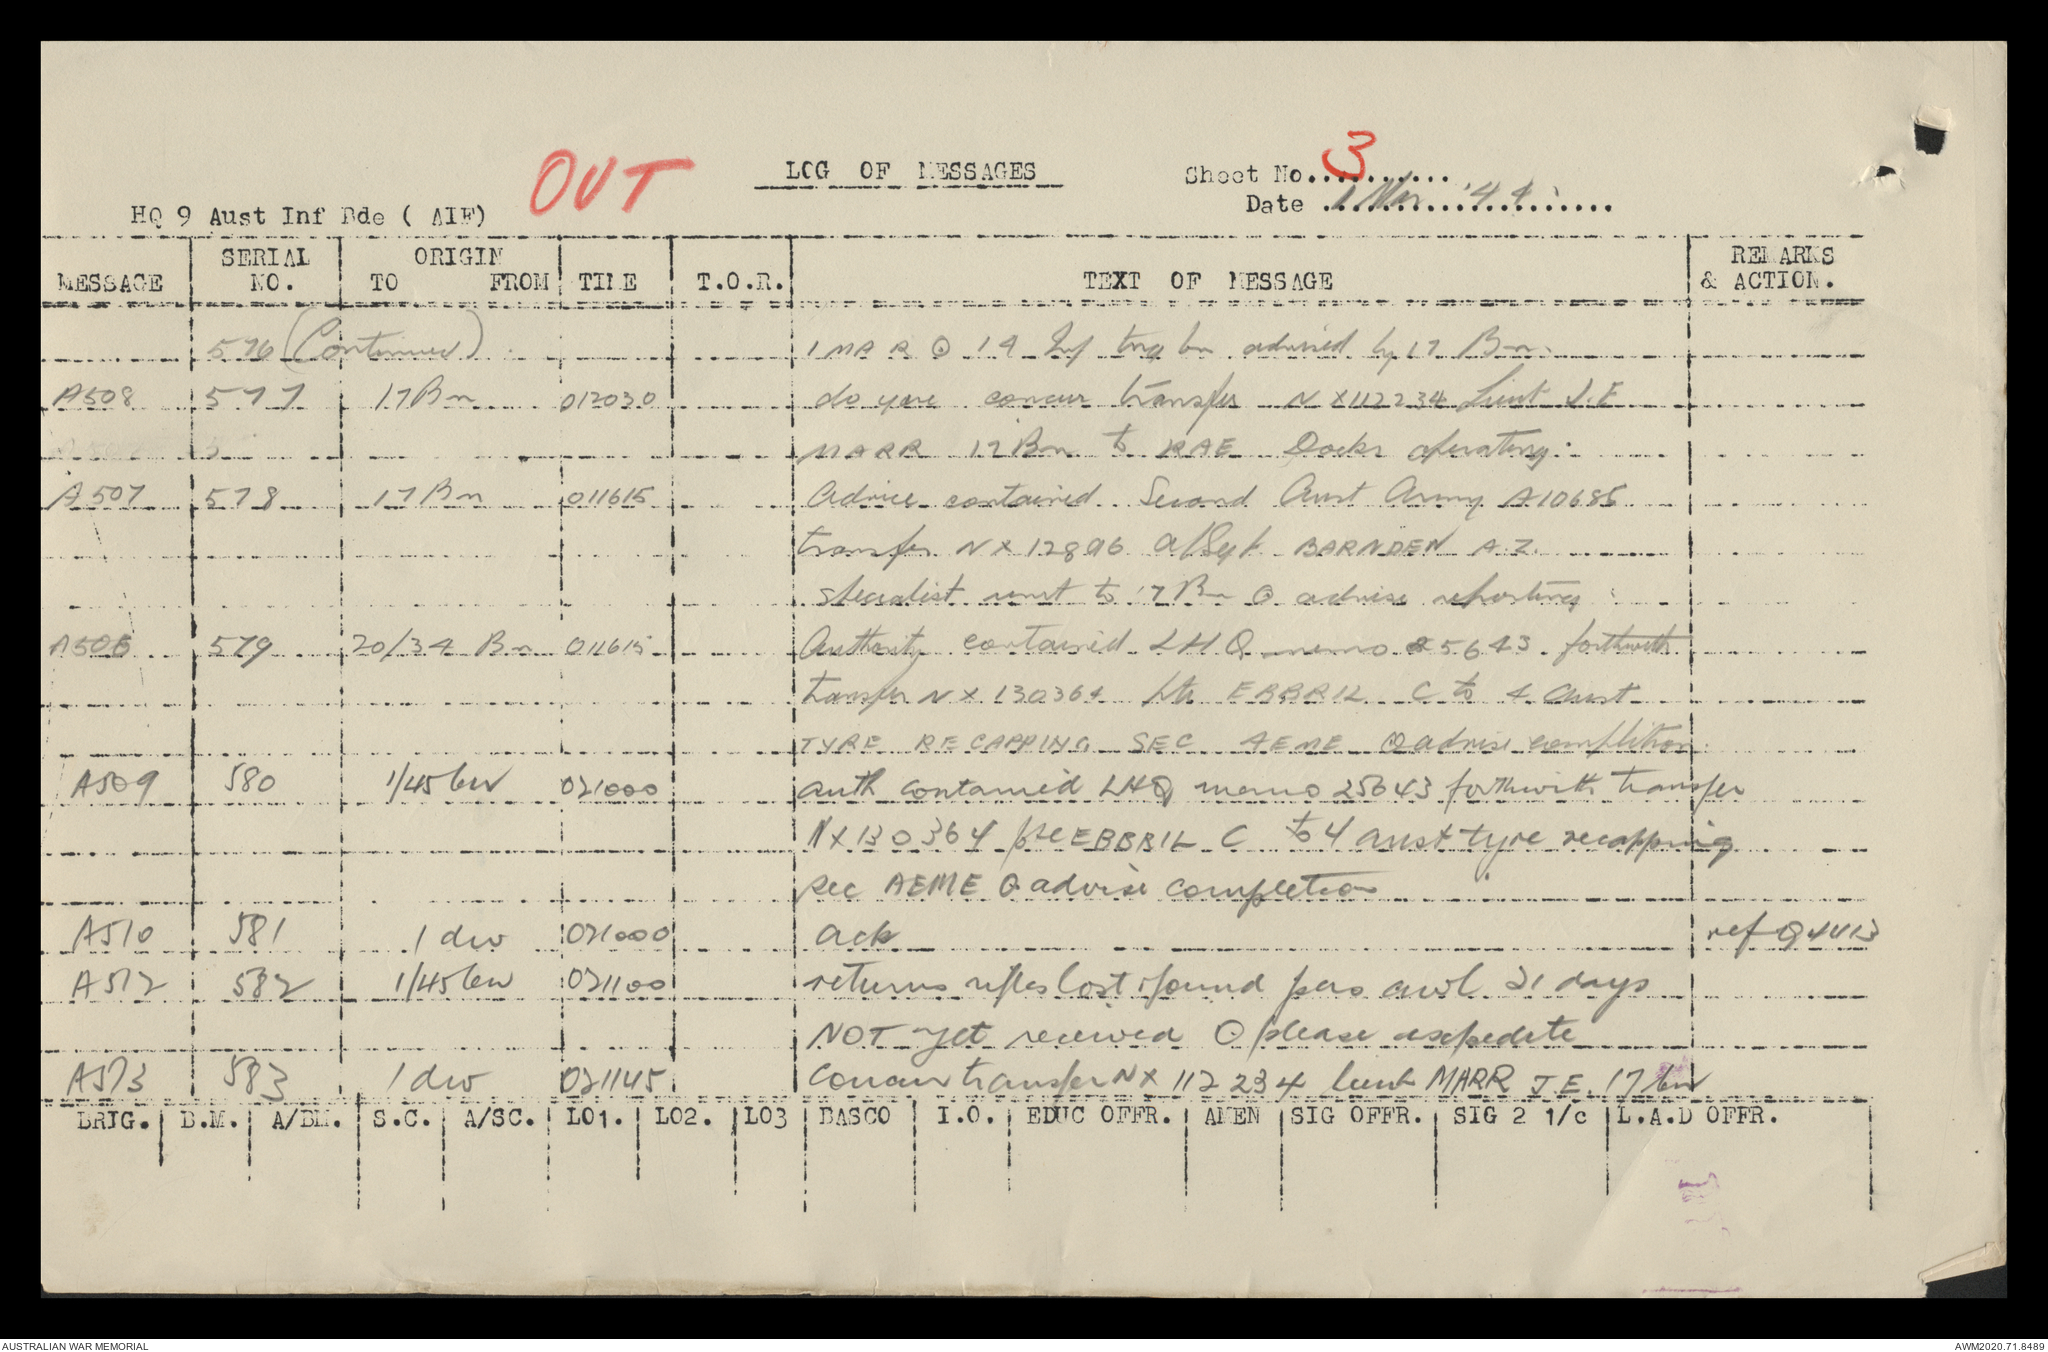 OUT
LOG OF MESSAGES
Sheet No. 3
Date 1 Mar '44
HQ 9 Aust Inf Bde ( AIF)
MESSAGE SERIAL NO. ORIGIN TO FROM TIME T.O.R. TEXT OF MESSAGE REMARKS & ACTION.
576 (Continued) 1 MAR O 14 Inf trg bn advised by 17 Bn.
A508 577 17 Bn 012030 do you concur transfer NX112234 Lieut J.E
MARR 17 Bn to RAE Docks operating:
A507 578 17 Bn 011615 Advice contained Second Aust Army A10685
transfer NX12896 a/Sgt BARNDEN A.Z.
specialist unit to 17 Bn O advise reporting:
A506 579 20/34 Bn 011615 Authority contained LHQ memo 25643 forthwith
transfer NX130364 Pte EBBRIL C to 4 Aust
TYRE RECAPPING SEC AEME O advise completion.
A509 580 1/45 bn 021000 auth contained LHQ memo 25643 forthwith transfer
NX130364 pte EBBRIL C to 4 aust tyre recapping
sec AEME O advise completion
A510 581 1 div 021000 ack ref Q4413
A512 582 1/45 bn 021100 returns rifles lost & found pers awl 21 days
NOT yet received O please expedite
A513 583 1 div 021145 Concur transfer NX 112234 lieut MARR J.E. 17 bn
BRIG. B.M. A/BM. S.C. A/SC. LO1. LO2. LO3 BASCO I.O. EDUC OFFR. AMEN SIG OFFR. SIG 2 1/c L.A.D OFFR.
AUSTRALIAN WAR MEMORIAL
AWM2020.71.8489